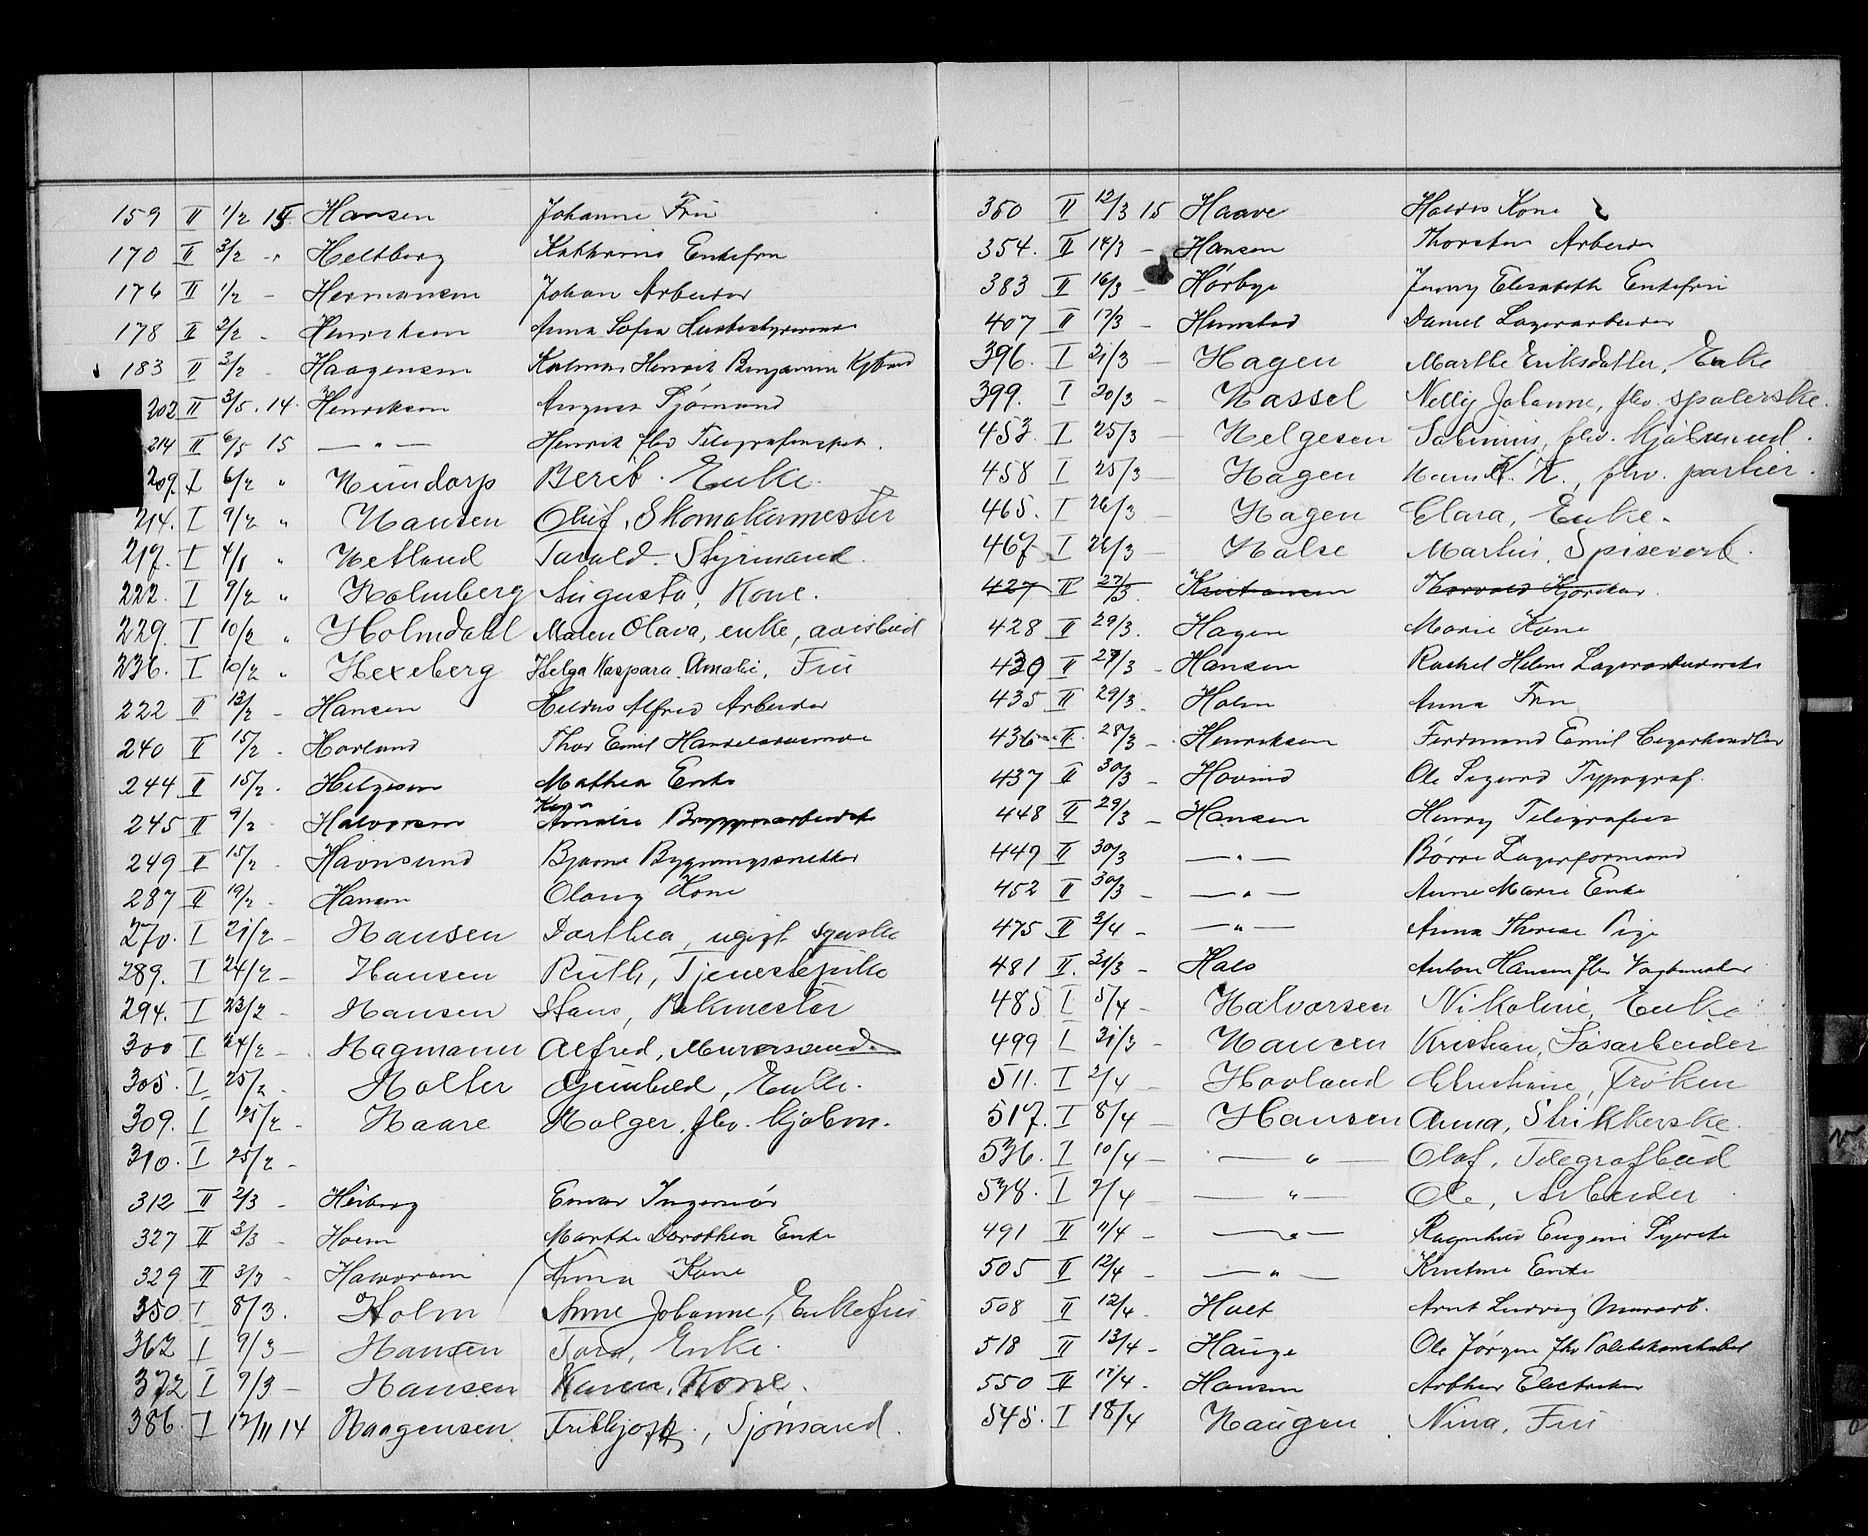 159 II 1/2 15 Hansen Johanne Fru
170 II 3/2 - Heltberg Kathrine Enkefru
176 II 1/2 - Hermansen Johan Arbeider
178 II 2/2 - Henriksen Anna Sofia Husbestyrerinde
183 II 3/2 - Haagensen Kalman Henrik Benjamin
202 II 3/5 14 Henriksen August Sjømand
214 II 6/5 15 — " — Henrik fhv Telegrafinspek.
209. I 6/2 " Berit. Enke.
214. I 9/2 " Hansen Oluf, Skomakermester
217. I 4/1 " Hetland Tarald. Styrmand.
222. I 9/2 " Holmberg Augusta, Kone.
229. I 10/2 " Holmdahl Maren Olava, enke, avisbud
236. I 10/2 " Hexeberg Helga Kaspara Amalie, Fru
222 II 13/2 - Hansen Hildus Alfred Arbeider
240 II 15/2 - Hovland Thor Emil
244 II 15/2 - Helgesen Mathea Enke
245 II 9/2 - Halvorsen Amalie Bryggeriarbeiderske
249 II 15/2 - Havnsund Bjarne Bygningssnekker
287 II 19/2 - Hansen Olaug Kone
270. I 21/2 - Hansen Dorthea, ugift syerske
289. I 24/2 - Hansen Ruth, Tjenestepike
294. I 23/2 - Hansen Hans, Blikmester
300 I 24/2 - Hagmann Alfred, Murersvend
305. I 25/2 - Holter Gunhild, Enke.
309. I 25/2 - Haare Holger, fhv. kjøbm.
310. I 25/2 -
312 II 2/3 - Heiberg Einar Ingeniør
327 II 3/3 - Holm Marthe Dorothea Enke
329 II 3/3 - Halvorsen Anna Kone
350 I 8/3. Holm Anne Johanne, Enkefru
362 I 9/3 - Hansen Tora, Enke.
372 I 9/3 - Hansen Karen, Kone.
386. I 12/11 14 Haagensen Fridtjoff, Sjømand.
350 II 12/3 15 Haave Haldis Kone
354. II 14/3 - Hansen Thorsten Arbeider
383 II 16/3 - Hørbye Jenny Elisabeth Enkefru
407 II 17/3 - Hemstad Daniel Lagerarbeider
396. I 21/3 - Hagen Marthe Eriksdatter, Enke
399. I 20/3 - Hassel Nelly Johanne, fhv. spolerske.
453. I 25/3 - Helgesen Salomine, fhv. kjøbmand.
458 I 25/3 - Hagen K. K., fhv. portier.
465. I 26/3 - Hagen Clara, Enke.
467 I 26/3 - Halse Martin, Spisevert.
427 II 27/3. Kristiansen Thorvald Kjørekar.
428 II 29/3. Hagen Marie Kone
430 II 27/3 - Hansen Rachel Helene Lagerarbeiderske
435 II 29/3. Holm Anna Fru
436 II 28/3 - Henriksen Ferdinand Emil Cigarhandler
437 II 30/3 - Hovind Ole Sigurd Typograf.
448 II 29/3 - Hansen Henry Telegrafist
449 II 30/3 — " — Børre Lagerformand
452 II 30/3 - — " — Anne Marie Enke
475 II 3/4 - — " — Anna Therese Pige
481 II. 31/3 - Hals Anton Hansen fhv Vagtmester
485 I 5/4 - Halvorsen Nikoline, Enke
499 I 31/3 - Hansen Kristian, Løsarbeider
511. I 2/4 - Hovland Christine, Frøken
517. I 8/4 - Hansen Anna, Strikkerske.
536. I 10/4 - — " — Olaf, Telegrafbud
538. I 7/4 - — " — Ole, Arbeider
491 II 11/4 - — " — Ragnhild Eugenie Syerske
505 II 12/4 - — " — Kristine Enke
508 II 12/4 - Holt Arnt Ludvig Murarb.
518 II 13/4 - Hauge Ole Jørgen fhv Politikonstabel
550 II 17/4. Hansen Arthur Elektriker
545. I 18/4 Haugen Nina, Fru